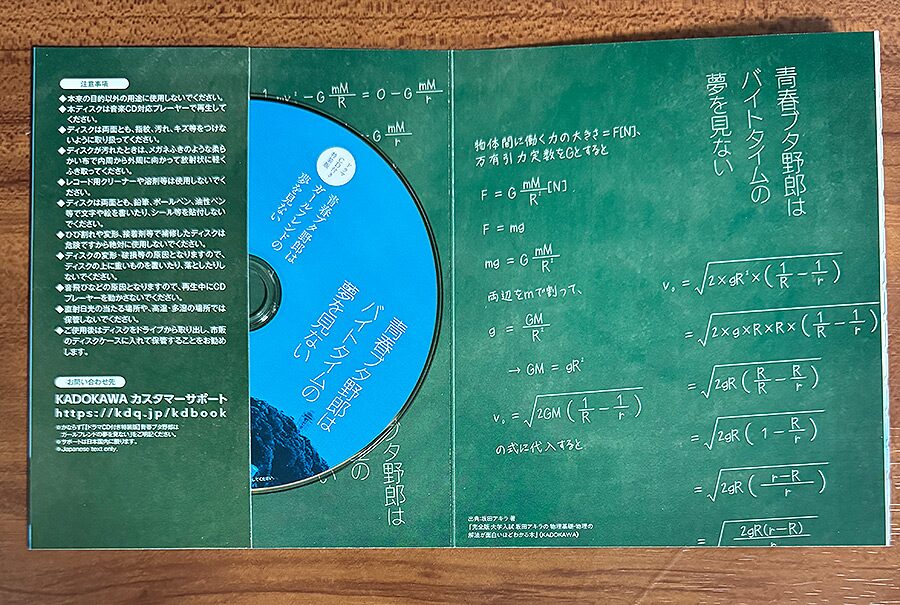 注意事項
◆本来の目的以外の用途に使用しないでください。
◆本ディスクは音楽CD対応プレーヤーで再生して
ください。
◆ディスクは両面とも、指紋、汚れ、キズ等をつけな
いように取り扱ってください。
◆ディスクが汚れたときは、メガネふきのような柔ら
かい布で内周から外周に向かって放射状に軽く
ふき取ってください。
◆レコード用クリーナーや溶剤等は使用しないでく
ださい。
◆ディスクは両面とも、鉛筆、ボールペン、油性ペン
等で文字や絵を書いたり、シール等を貼付しない
でください。
◆ひび割れや変形、接着剤等で補修したディスクは
危険ですから絶対に使用しないでください。
◆ディスクの変形・破損等の原因となりますので、
ディスクの上に重いものを置いたり、落としたりし
ないでください。
◆音飛びなどの原因となりますので、再生中にCD
プレーヤーを動かさないでください。
◆直射日光の当たる場所や、高温・多湿の場所では
保管しないでください。
◆ご使用後はディスクをドライブから取り出し、市販
のディスクケースに入れて保管することをお勧め
します。
お問い合わせ先
KADOKAWA カスタマーサポート
https://kdq.jp/kdbook
※かならず「『ドラマCD付き特装版』青春ブタ野郎は
ガールフレンドの夢を見ない」をご明記ください。
※サポートは日本国内に限ります。
※Japanese text only.
mv² - G mM/R = 0 - G mM/r
= G mM/r
ドラマ
CD付き
特装版
青春ブタ野郎は
ガールフレンドの
夢を見ない
青春ブタ野郎は
バイトタイムの
夢を見ない
タ野郎は
の
い
青春ブタ野郎は
バイトタイムの
夢を見ない
物体間に働く力の大きさ=F[N]、
万有引力定数をGとすると
F = G mM/R² [N]
F = mg
mg = G mM/R²
両辺をmで割って、
g = GM/R²
→ GM = gR²
v₀ = √(2GM (1/R - 1/r))
の式に代入すると、
v₀ = √(2×gR²×(1/R - 1/r))
= √(2×g×R×R×(1/R - 1/r))
= √(2gR (R/R - R/r))
= √(2gR (1 - R/r))
= √(2gR ((r-R)/r))
= √(2gR(r-R)
出典：坂田アキラ 著
『完全版 大学入試 坂田アキラの 物理基礎・物理の
解法が面白いほどわかる本』(KADOKAWA)